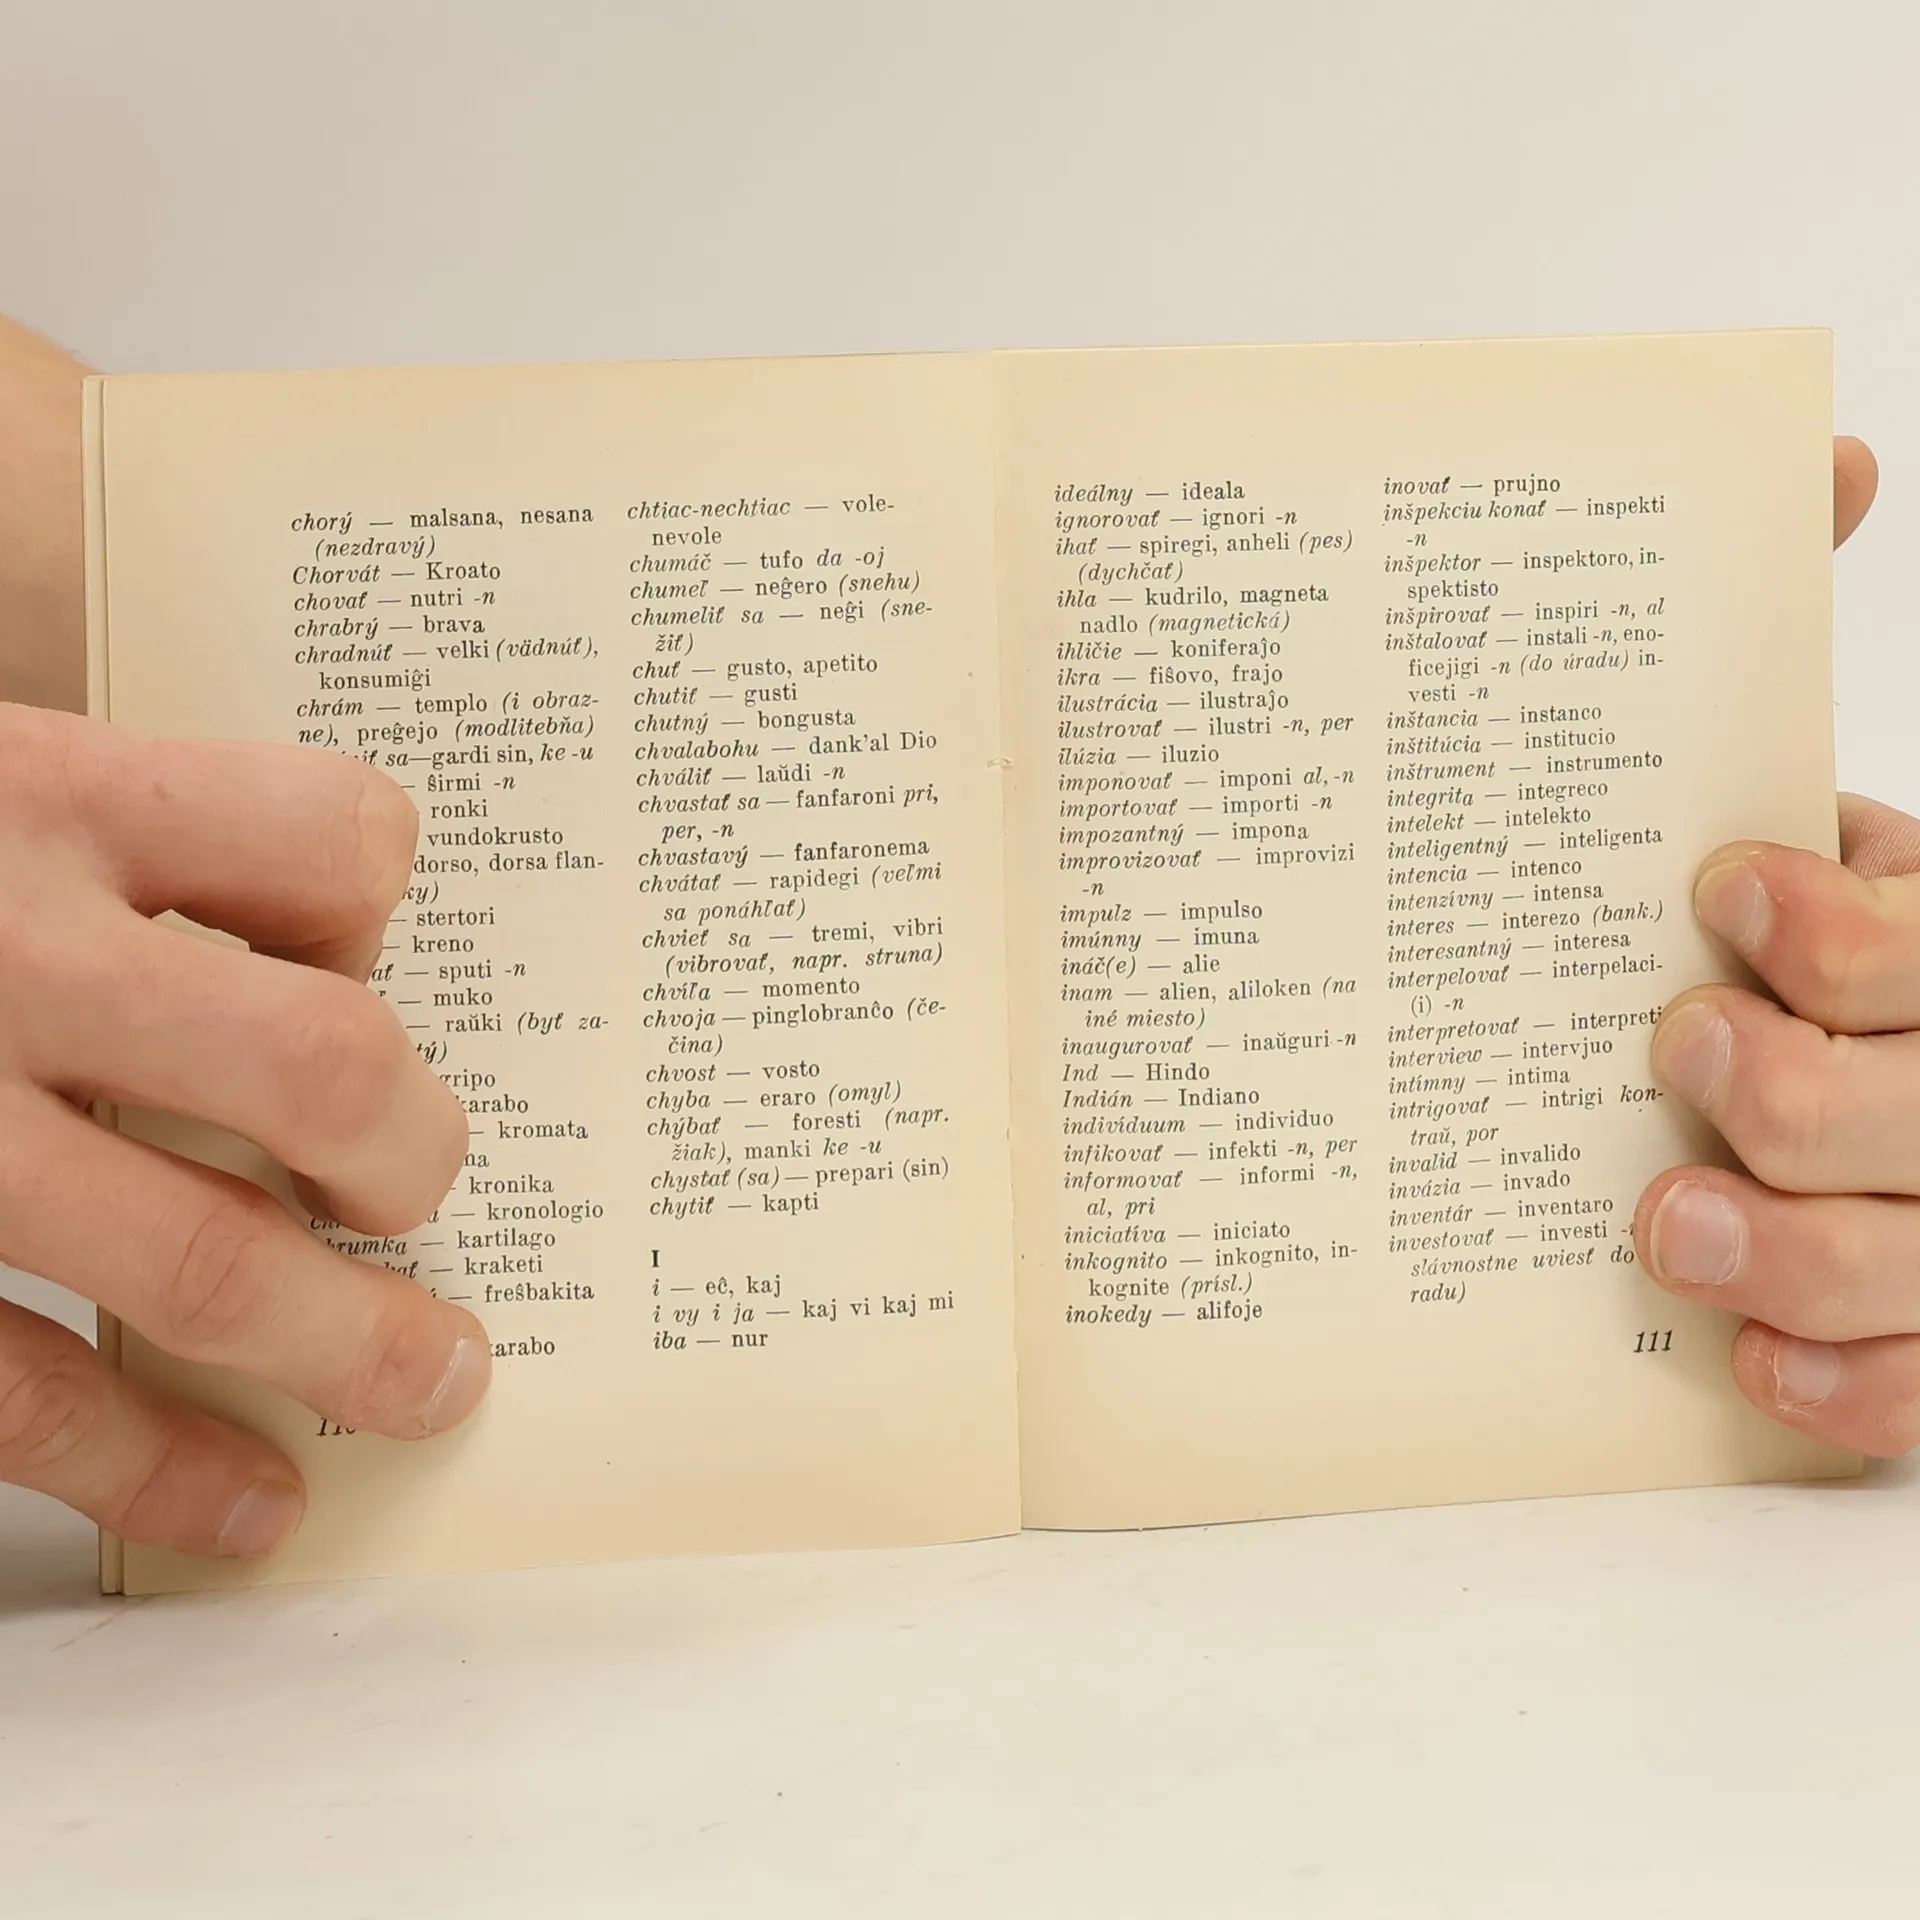 chorý — malsana, nesana
(nezdravý)
Chorvát — Kroato
chovať — nutri -n
chrabrý — brava
chradnúť — velki (vädnúť),
konsumiĝi
chrám — templo (i obraz-
ne), preĝejo (modlitebňa)
sa—gardi sin, ke -u
— ŝirmi -n
ronki
vundokrusto
dorso, dorsa flan-
— stertori
— kreno
— sputi -n
— muko
— raŭki (byť za-
karabo
— kromata
— kronika
— kronologio
— kartilago
— kraketi
— freŝbakita
chtiac-nechtiac — vole-
nevole
chumáč — tufo da -oj
chumeľ — neĝero (snehu)
chumeliť sa — neĝi (sne-
žiť)
chuť — gusto, apetito
chutiť — gusti
chutný — bongusta
chvalabohu — dank'al Dio
chváliť — laŭdi -n
chvastať sa — fanfaroni pri,
per, -n
chvastavý — fanfaronema
chvátať — rapidegi (veľmi
sa ponáhľať)
chvieť sa — tremi, vibri
(vibrovať, napr. struna)
chvíľa — momento
chvoja — pinglobranĉo (če-
čina)
chvost — vosto
chyba — eraro (omyl)
chýbať — foresti (napr.
žiak), manki ke -u
chystať (sa) — prepari (sin)
chytiť — kapti
I
i — eĉ, kaj
i vy i ja — kaj vi kaj mi
iba — nur
ideálny — ideala
ignorovať — ignori -n
ihať — spiregi, anheli (pes)
(dychčať)
ihla — kudrilo, magneta
nadlo (magnetická)
ihličie — koniferaĵo
ikra — fiŝovo, frajo
ilustrácia — ilustraĵo
ilustrovať — ilustri -n, per
ilúzia — iluzio
imponovať — imponi al, -n
importovať — importi -n
impozantný — impona
improvizovať — improvizi
-n
impulz — impulso
imúnny — imuna
ináč(e) — alie
inam — alien, aliloken (na
iné miesto)
inaugurovať — inaŭguri -n
Ind — Hindo
Indián — Indiano
indivíduum — individuo
infikovať — infekti -n, per
informovať — informi -n,
al, pri
iniciatíva — iniciato
inkognito — inkognito, in-
kognite (prísl.)
inokedy — alifoje
inovať — prujno
inšpekciu konať — inspekti
-n
inšpektor — inspektoro, in-
spektisto
inšpirovať — inspiri -n, al
inštalovať — instali -n, eno-
ficejigi -n (do úradu) in-
vesti -n
inštancia — instanco
inštitúcia — institucio
inštrument — instrumento
integrita — integreco
intelekt — intelekto
inteligentný — inteligenta
intencia — intenco
intenzívny — intensa
interes — interezo (bank.)
interesantný — interesa
interpelovať — interpelaci-
(i) -n
interpretovať — interpreti
interview — intervjuo
intímny — intima
intrigovať — intrigi kon-
traŭ, por
invalid — invalido
invázia — invado
inventár — inventaro
investovať — investi
slávnostne uviesť do
radu)
111